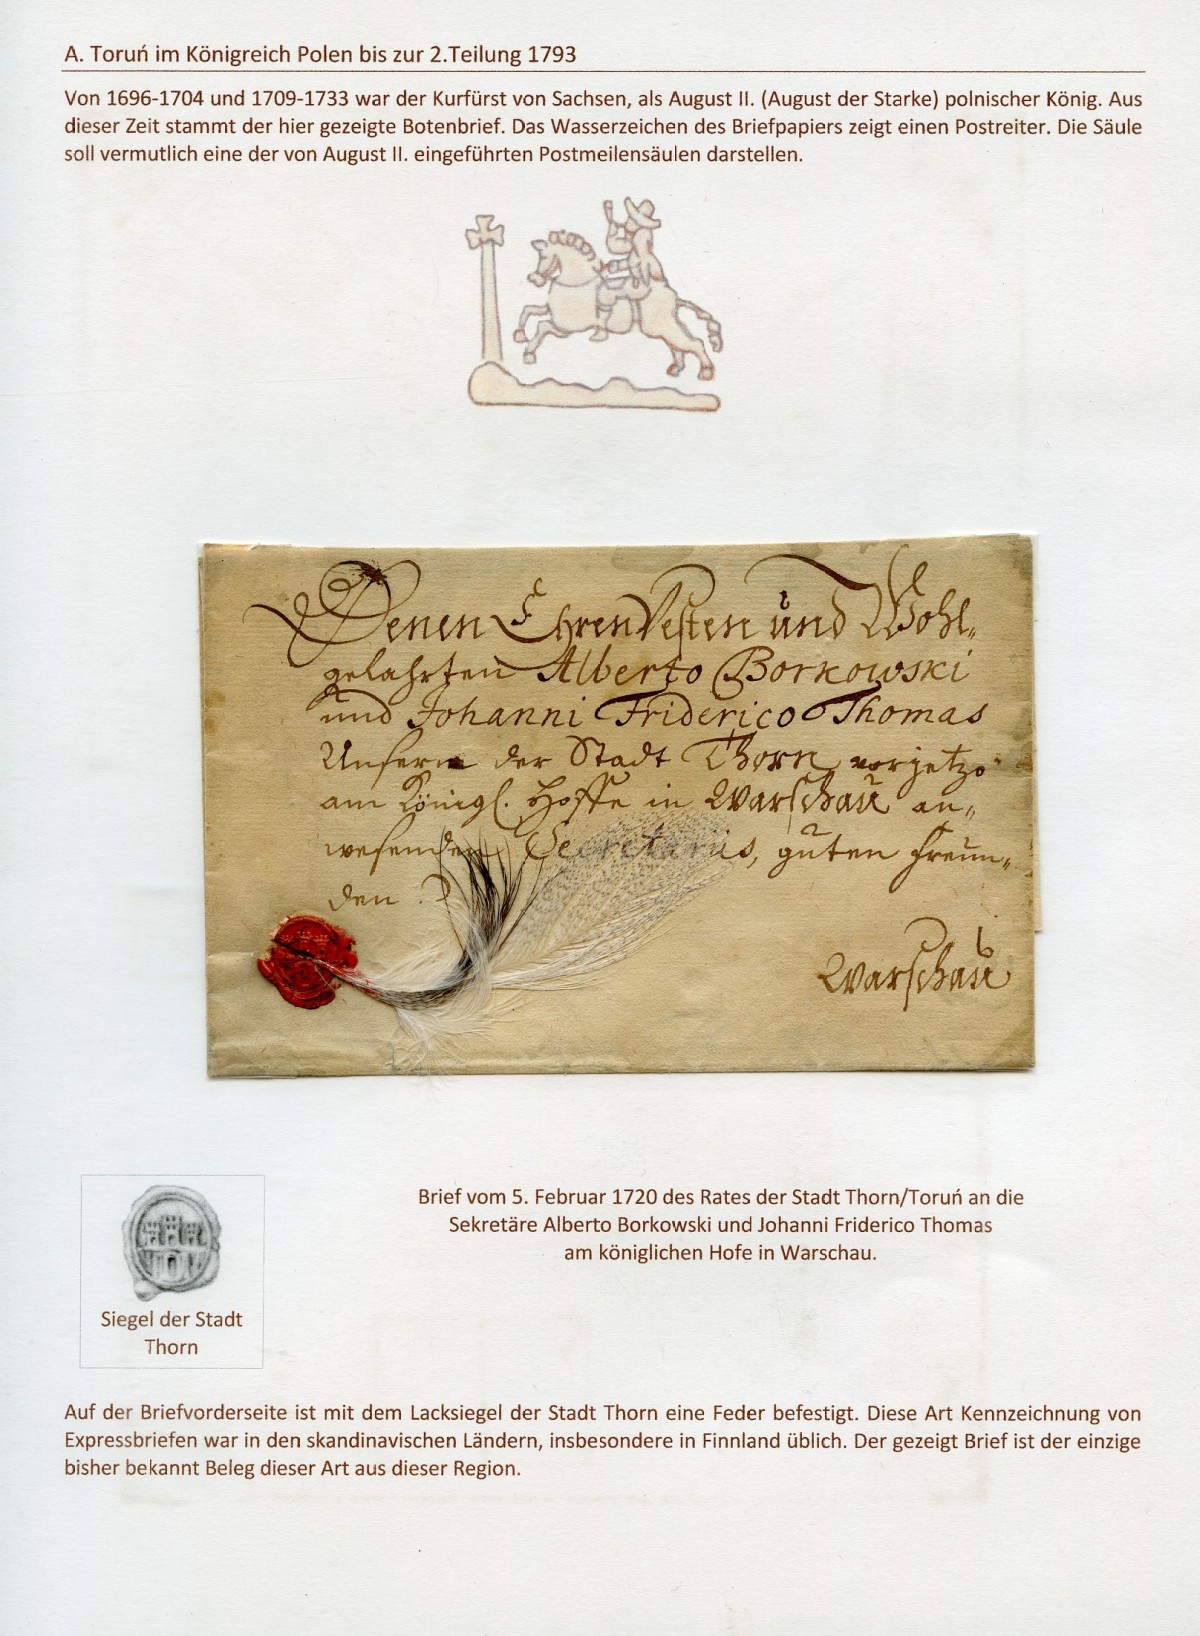 A. Toruń im Königreich Polen bis zur 2.Teilung 1793
Von 1696-1704 und 1709-1733 war der Kurfürst von Sachsen, als August II. (August der Starke) polnischer König. Aus
dieser Zeit stammt der hier gezeigte Botenbrief. Das Wasserzeichen des Briefpapiers zeigt einen Postreiter. Die Säule
soll vermutlich eine der von August II. eingeführten Postmeilensäulen darstellen.
Denen EhrenVesten und Wohl-
gelahrten Alberto Borkowski
und Johanni Friderico Thomas
Unsern der Stadt Thorn vorjetzo
am Königl. Hoffe in Warschau an-
wesenden Secretariis, guten Freun-
den
Warschau
Brief vom 5. Februar 1720 des Rates der Stadt Thorn/Toruń an die
Sekretäre Alberto Borkowski und Johanni Friderico Thomas
am königlichen Hofe in Warschau.
Siegel der Stadt
Thorn
Auf der Briefvorderseite ist mit dem Lacksiegel der Stadt Thorn eine Feder befestigt. Diese Art Kennzeichnung von
Expressbriefen war in den skandinavischen Ländern, insbesondere in Finnland üblich. Der gezeigt Brief ist der einzige
bisher bekannt Beleg dieser Art aus dieser Region.